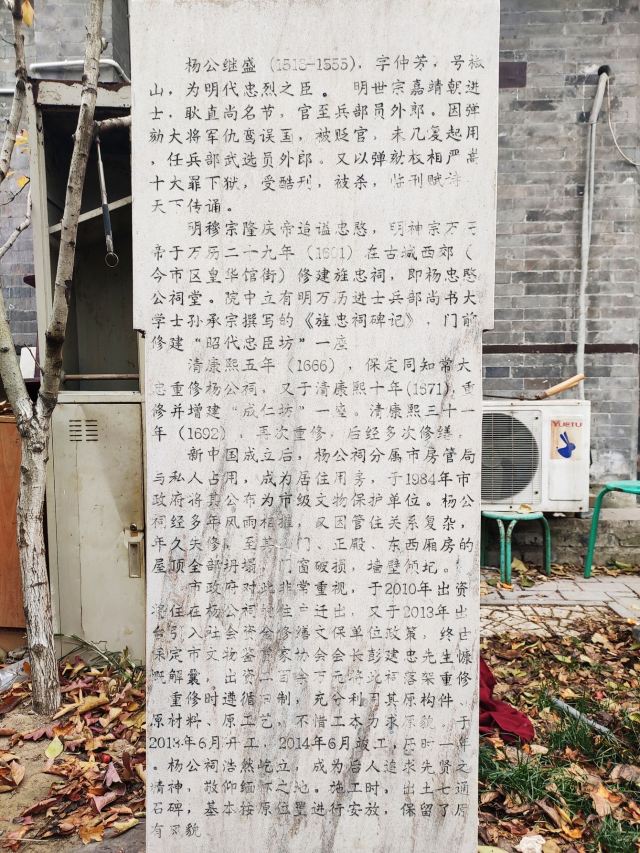 杨公继盛 (1516-1555), 字仲芳, 号椒
山, 为明代忠烈之臣。 明世宗嘉靖朝进
士, 耿直尚名节, 官至兵部员外郎。因弹
劾大将军仇鸾误国, 被贬官, 未几复起用
, 任兵部武选员外郎。又以弹劾权相严嵩
十大罪下狱, 受酷刑, 被杀, 临刑赋诗
天下传诵。
明穆宗隆庆帝追谥忠愍, 明神宗万历
帝于万历二十九年 (1601) 在古城西郊 (
今市区皇华馆街) 修建旌忠祠, 即杨忠愍
公祠堂。院中立有明万历进士兵部尚书大
学士孙承宗撰写的《旌忠祠碑记》, 门前
修建“昭代忠臣坊”一座
清康熙五年 (1666), 保定同知常大
忠重修杨公祠, 又于清康熙十年(1671)重
修并增建“成仁坊”一座。清康熙三十一
年 (1692), 再次重修, 后经多次修缮.
新中国成立后, 杨公祠分属市房管局
与私人占用, 成为居住用房, 于1984年市
政府将其公布为市级文物保护单位。杨公
祠经多年风雨相摧, 又因管住关系复杂,
年久失修, 至其山门、正殿、东西厢房的
屋顶全部坍塌, 门窗破损, 墙壁倾圮。
市政府对此非常重视, 于2010年出资
将住在杨公祠 住户迁出, 又于2013年出
台引入社会资金修缮文保单位政策, 终由
保定市文物鉴 家协会会长彭建忠先生慷
慨解囊, 出资二百余万元将此祠落架重修
重修时遵循旧制, 充分利用其原构件、
原材料、原工艺, 不惜工本力求原貌, 于
2013年6月开工, 2014年6月竣工, 历时一年
. 杨公祠浩然屹立, 成为后人追求先贤之
精神, 敬仰缅怀之地。施工时, 出土七通
石碑, 基本按原位置进行安放, 保留了原
有风貌
YUETU